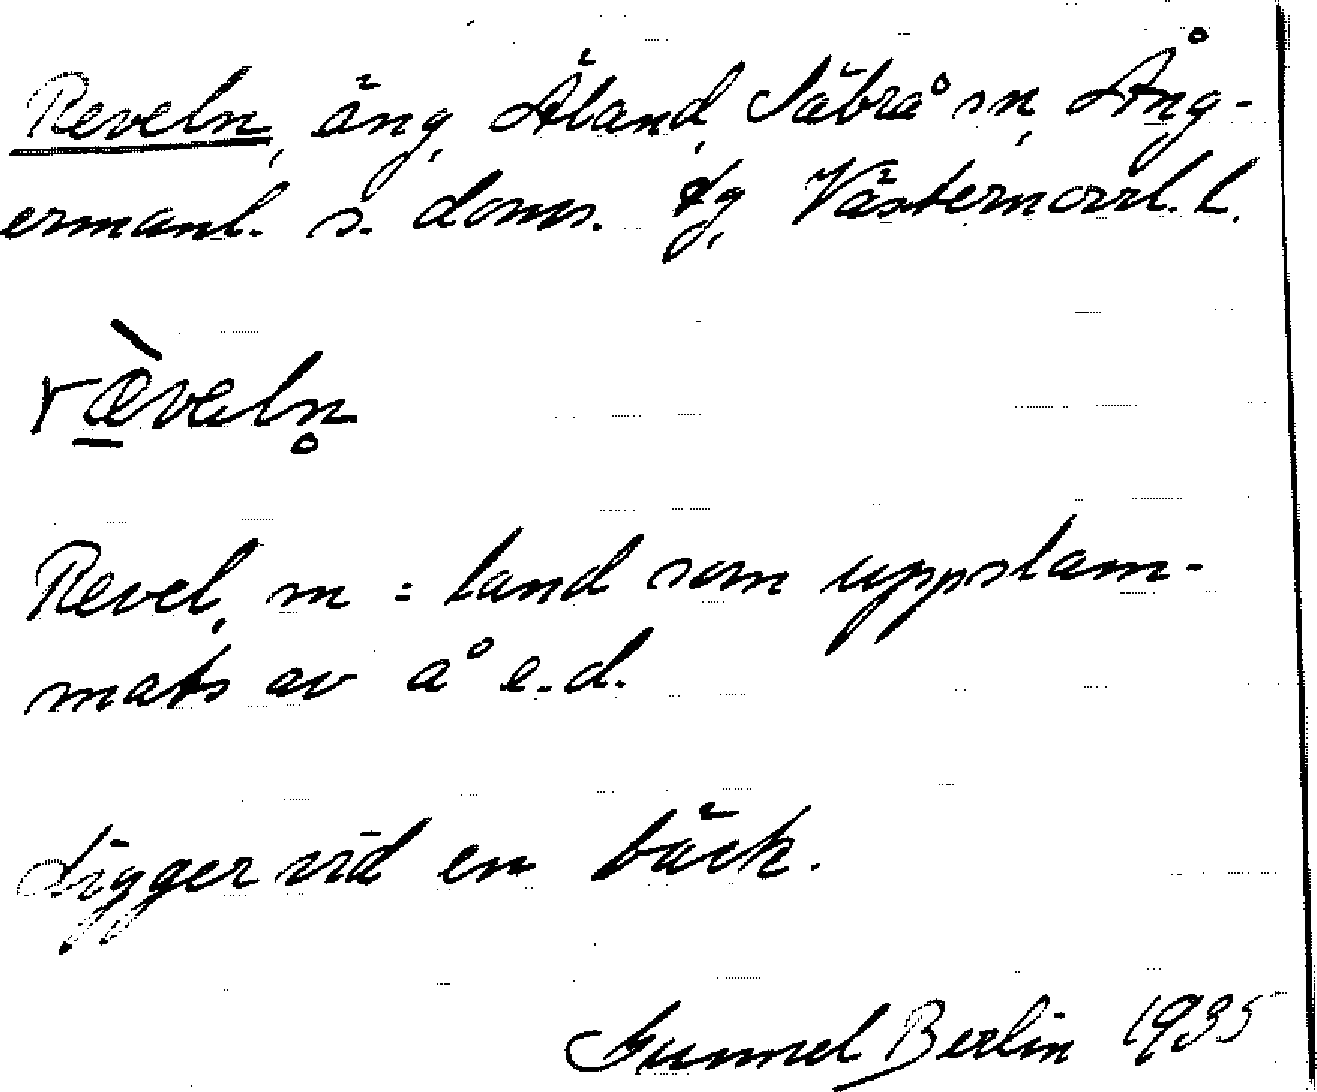 Reveln, äng, Äland, Säbrå sn, Ång-
ermanl. s. doms. tg, Västernorrl. l.
ræ̀veln̥
Revel, m = land som uppslam-
mats av å e.d.
Ligger vid en bäck.
Gunnel Berlin 1935